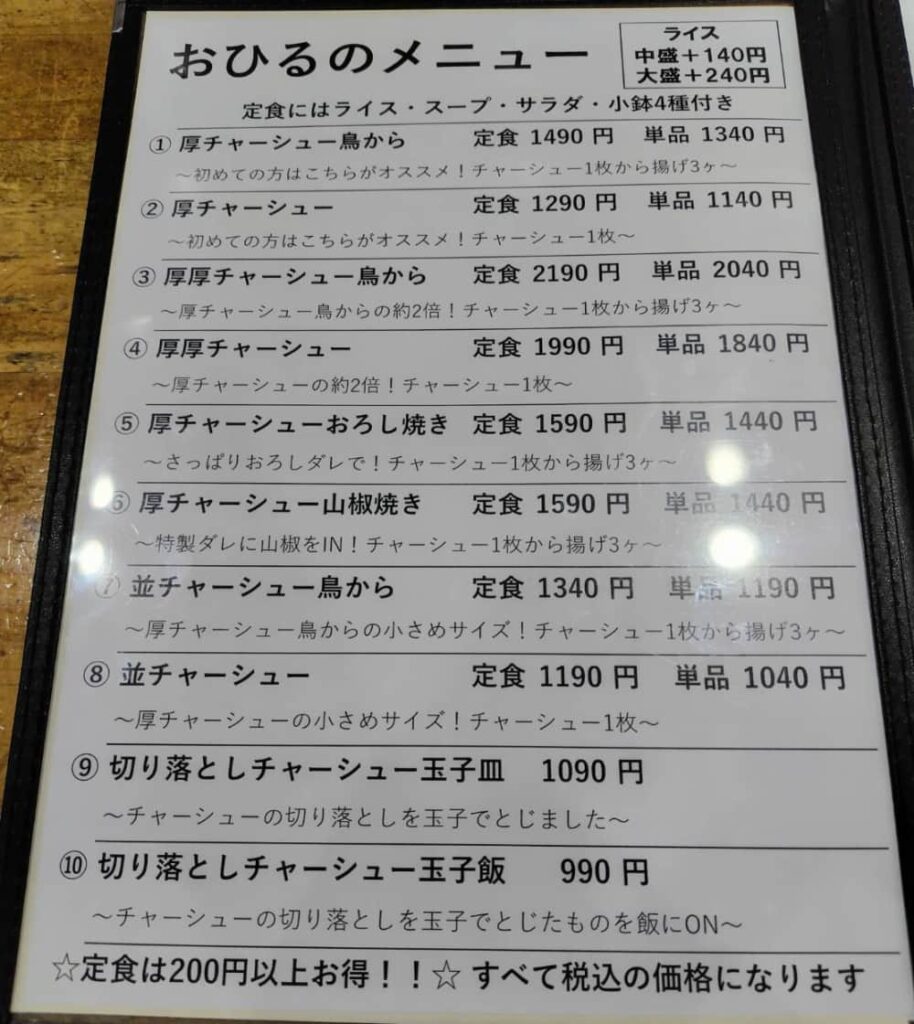 おひるのメニュー
ライス
中盛＋140円
大盛＋240円
定食にはライス・スープ・サラダ・小鉢4種付き
① 厚チャーシュー鳥から 定食 1490 円 単品 1340 円
～初めての方はこちらがオススメ！チャーシュー1枚から揚げ3ヶ～
② 厚チャーシュー 定食 1290 円 単品 1140 円
～初めての方はこちらがオススメ！チャーシュー1枚～
③ 厚厚チャーシュー鳥から 定食 2190 円 単品 2040 円
～厚チャーシュー鳥からの約2倍！チャーシュー1枚から揚げ3ヶ～
④ 厚厚チャーシュー 定食 1990 円 単品 1840 円
～厚チャーシューの約2倍！チャーシュー1枚～
⑤ 厚チャーシューおろし焼き 定食 1590 円 単品 1440 円
～さっぱりおろしダレで！チャーシュー1枚から揚げ3ヶ～
⑥ 厚チャーシュー山椒焼き 定食 1590 円 単品 1440 円
～特製ダレに山椒をIN！チャーシュー1枚から揚げ3ヶ～
⑦ 並チャーシュー鳥から 定食 1340 円 単品 1190 円
～厚チャーシュー鳥からの小さめサイズ！チャーシュー1枚から揚げ3ヶ～
⑧ 並チャーシュー 定食 1190 円 単品 1040 円
～厚チャーシューの小さめサイズ！チャーシュー1枚～
⑨ 切り落としチャーシュー玉子皿 1090 円
～チャーシューの切り落としを玉子でとじました～
⑩ 切り落としチャーシュー玉子飯 990 円
～チャーシューの切り落としを玉子でとじたものを飯にON～
☆定食は200円以上お得！！☆ すべて税込の価格になります